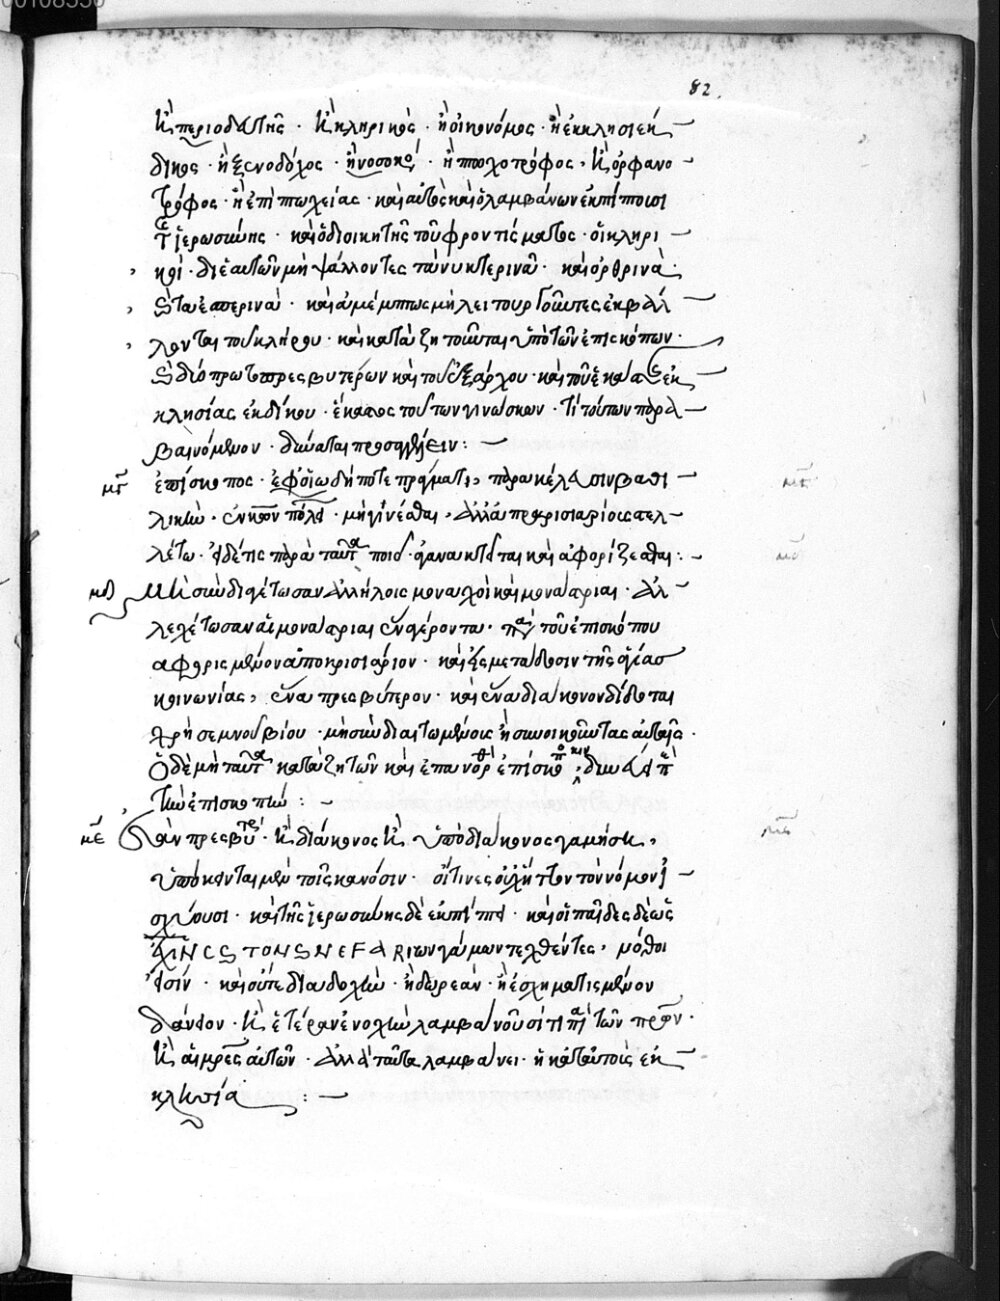 82
ἢ περιοδευτῆς · ἢ κληρικὸς · ἢ οἰκονόμος · ἢ ἐκκλησιέκ
δικος · ἢ ξενοδόχος · ἢ νοσοκό · ἢ πτωχοτρόφος · ἢ ὀρφανο
τρόφος · ἢ ἐπὶ πτωχείας · καὶ αὐτὸς καὶ ὁ λαμβάνων ἐκπίπτουσι
τ ἱερωσύνης · καὶ ὁ διοικητὴς τοῦ φροντίσματος · οἱ κληρι
κοὶ · δι' ἑαυτῶν μὴ ψάλλοντες τὰ νυκτερινὰ · καὶ ὀρθρινὰ ·
καὶ τὰ ἑσπερινὰ · καὶ ἀμέμπτως μὴ λειτουργοῦντες ἐκβάλ
λονται τοῦ κλήρου · καὶ καταζητοῦνται ὑπὸ τῶν ἐπισκόπων ·
καὶ δύο πρωτοπρεσβυτέρων καὶ τοῦ ἐξάρχου · καὶ τοῦ ἑκάστης ἐκ
κλησίας ἐκδίκου · ἕκαστος τούτων γινώσκων · τὶ τούτων παρα
βαινόμενον · δύναται προσαγγέλλειν :
μγ ἐπίσκοπος · ἐφ' οἱωδήποτε πράγματι, παρὰ κέλευσιν βασι
λικὴν · ἐν κων πόλει · μὴ γινέσθαι, ἀλλὰ ἀποκρισιαρίοις στελ
λέτω · εἰ δέ τις παρὰ ταῦτα ποιεῖ · ἀγανακτεῖται καὶ ἀφορίζεσθαι :
μδ Μὴ συνδιαγέτωσαν ἀλλήλοις μοναχοὶ καὶ μονάστριαι · ἀλ
λεγέτωσαν αἱ μονάστριαι ἕνα γέροντα · παρὰ τοῦ ἐπισκόπου
ἀφορισμένον ἀποκρισιάριον · καὶ εἰς μετάδοσιν τῆς ἁγίας
κοινωνίας, ἕνα πρεσβύτερον · καὶ ἕνα διάκονον δίδοται
χρὴ σεμνοῦ βίου · μὴ συνδιαιτωμένοις ἢ συνοικοῦντας αὐταῖς ·
ὁ δὲ μὴ ταῦτα καταζητῶν καὶ ἐπανορθ ἐπίσκοπ κινδυνεύει π
τὴν ἐπισκοπὴν :
με ἐὰν πρεσβύτε · ἢ διάκονος ἢ ὑποδιάκονος γαμήσει,
ὑπόκεινται μὲν τοῖς κανόσιν · οἵτινες οὐχ ἧττον τὸν νόμον
ἰσχύουσι · καὶ τῆς ἱερωσύνης δὲ ἐκπίπτει · καὶ οἱ παῖδες δὲ ὡς
INCSTONSNEFARIων γάμων τεχθέντες, νόθοι
εἰσίν · καὶ οὔτε διαδοχὴν · ἢ δωρεὰν · ἢ ἐσχηματισμένον
δάνειον · ἢ ἑτέραν ἐνοχὴν λαμβάνουσί τι παρὰ τῶν πρων ·
ἢ αἱ μρες αὐτῶν · ἀλλὰ ταῦτα λαμβάνει · ἡ κατ' αὐτοὺς ἐκ
κλησία :